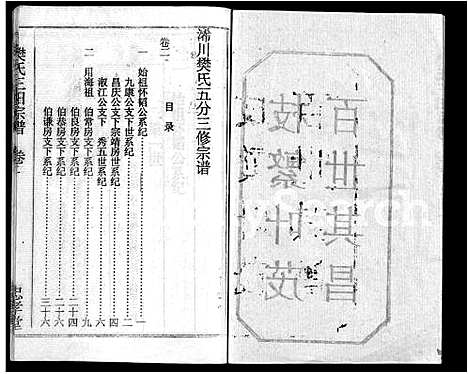 百世其昌
枝繁叶茂
浠川樊氏五分三修宗谱
卷二
目录
一 始祖怀韬公系纪 一
九康公支下世系纪 二
昌庆公支下 宗靖房世系纪 四
淑江公支下 秀五世系纪 六
二 用海祖 伯常房支下系纪 九
伯良房支下系纪 二十四
伯恭房支下系纪 二十六
伯谦房支下系纪 三十六
樊氏三田宗谱 卷二
忠孝堂